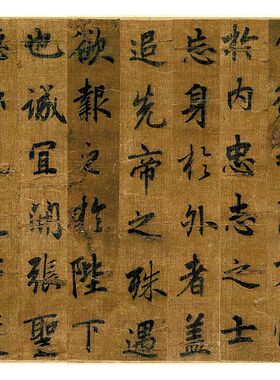 於內忠志之士
忘身於外者蓋
追先帝之殊遇
欲報之於陛下
也誠宜開張聖